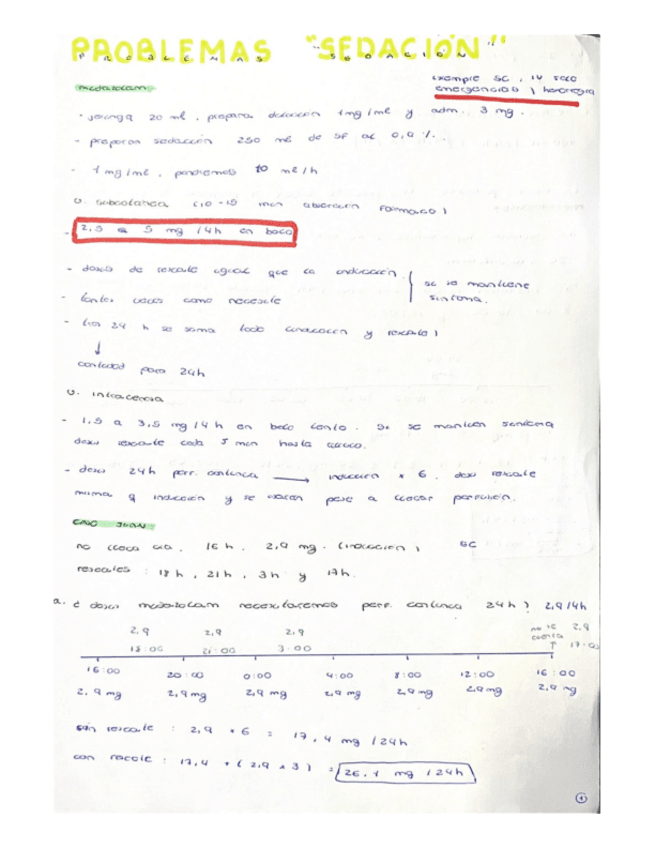 PROBLEMAS "SEDACIÓN"
PROBLEMAS SEDACIÓN
midazolam
emergencias
- jeringa 20 ml, preparo dilución 1mg/ml y adm. 3 mg.
- preparan sedación 250 ml de SF al 0,9 %.
- 1 mg/ml, pondremos 10 ml/h
v. subcutánea (10-15 min absorción fármaco)
- 2,5 a 5 mg /4h en bolo
- dosis de rescate igual que la inducción.
- tantas veces como necesite
se va mantiene
síntoma.
- las 24 h se suma todo (inducción y rescate)
↓
cantidad para 24h
v. intravenosa
- 1,5 a 3,5 mg /4h en bolo lento. Si se mantien síntoma
dosis rescate cada 5 min hasta
- dosis 24h perf. continua → inducción * 6. dosis rescate
misma q inducción y se para a perfusión.
CASO JUAN
no 16 h. 2,9 mg. (inducción) SC
rescates: 18h, 21h, 3h y 17h.
a. ¿ dosis midazolam necesitaremos perf. continua 24h? 2,9/4h
2,9 2,9 2,9 no se cuenta 2,9
18:00 21:00 3:00 ↑ 17:00
16:00 20:00 0:00 4:00 8:00 12:00 16:00
2,9 mg 2,9mg 2,9 mg 2,9 mg 2,9mg 2,9mg 2,9 mg
sin rescate: 2,9 * 6 = 17,4 mg /24h
con rescate: 17,4 + (2,9 * 3) = 26,1 mg /24h
1